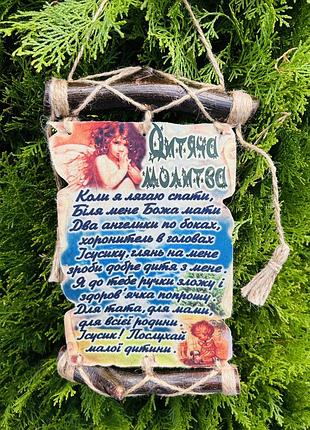 Дитяча
молитва
Коли я лягаю спати,
Біля мене Божа мати
Два ангелики по боках,
хоронитель в головах
Ісусику, глянь на мене
зроби добре дитя з мене.
Я до тебе ручки зложу і
здоров'ячка попрошу
Для тата, для мами,
для всієї родини.
Ісусик! Послухай
малої дитини.